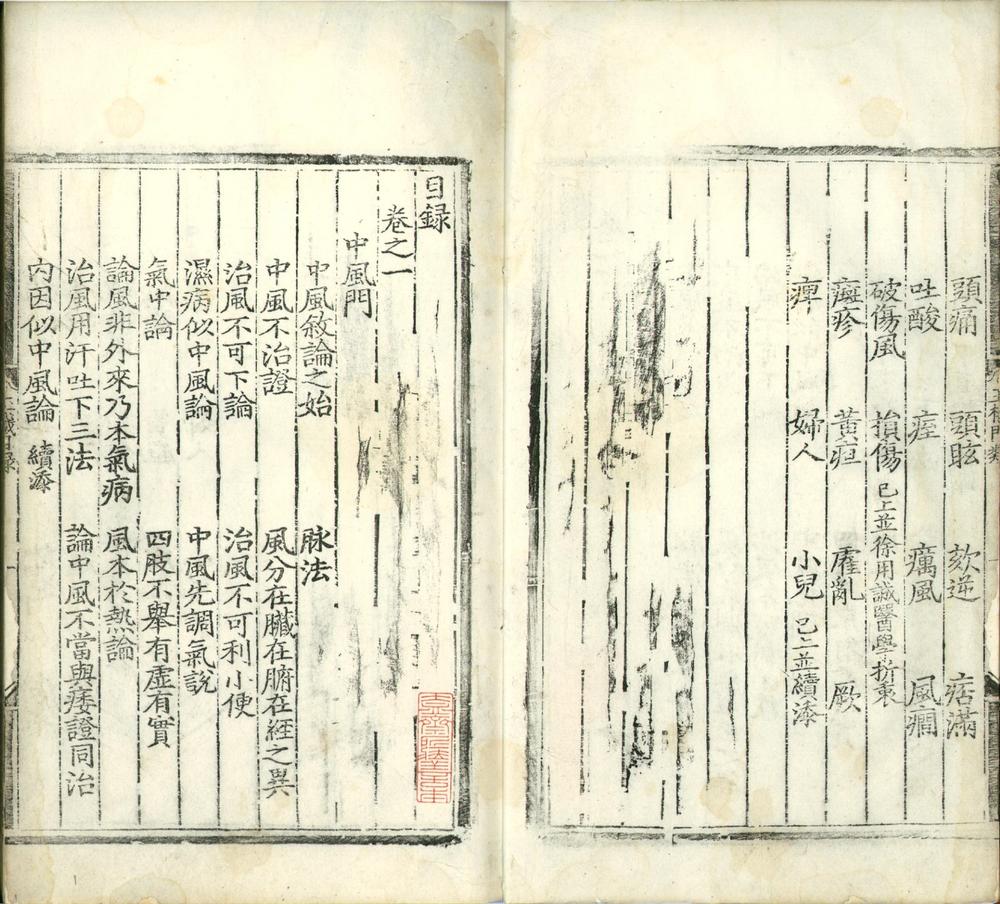 頭痛 頭眩 欬逆 痞滿
吐酸 痓 癘風 風癎
破傷風 損傷 已上並徐用誠醫學折衷
癍疹 黃疸 霍亂 厥
痺 婦人 小兒 已上並續添
目録
卷之一
中風門
中風敘論之始 脉法
中風不治證 風分在臟在腑在經之異
治風不可下論 治風不可利小便
濕病似中風論 中風先調氣説
氣中論 四肢不舉有虛有實
論風非外來乃本氣病 風本於熱論
治風用汗吐下三法 論中風不當與痿證同治
內因似中風論 續添